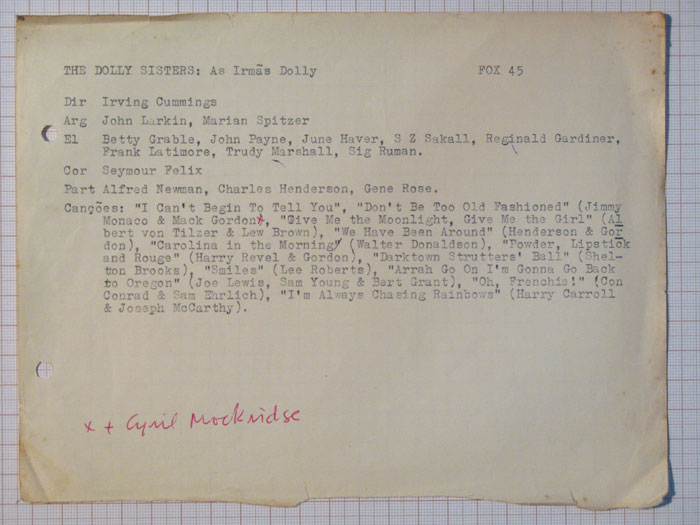 THE DOLLY SISTERS: As Irmãs Dolly FOX 45
Dir Irving Cummings
Arg John Larkin, Marian Spitzer
El Betty Grable, John Payne, June Haver, S Z Sakall, Reginald Gardiner,
Frank Latimore, Trudy Marshall, Sig Ruman.
Cor Seymour Felix
Part Alfred Newman, Charles Henderson, Gene Rose.
Canções: "I Can't Begin To Tell You", "Don't Be Too Old Fashioned" (Jimmy
Monaco & Mack Gordon), "Give Me the Moonlight, Give Me the Girl" (Al
bert von Tilzer & Lew Brown), "We Have Been Around" (Henderson & Gor
don), "Carolina in the Morning" (Walter Donaldson), "Powder, Lipstick
and Rouge" (Harry Revel & Gordon), "Darktown Strutters' Ball" (Shel-
ton Brooks), "Smiles" (Lee Roberts), "Arrah Go On I'm Gonna Go Back
to Oregon" (Joe Lewis, Sam Young & Bert Grant), "Oh, Frenchie!" (Con
Conrad & Sam Ehrlich), "I'm Always Chasing Rainbows" (Harry Carroll
& Joseph McCarthy).
x + Cyril Mockridge